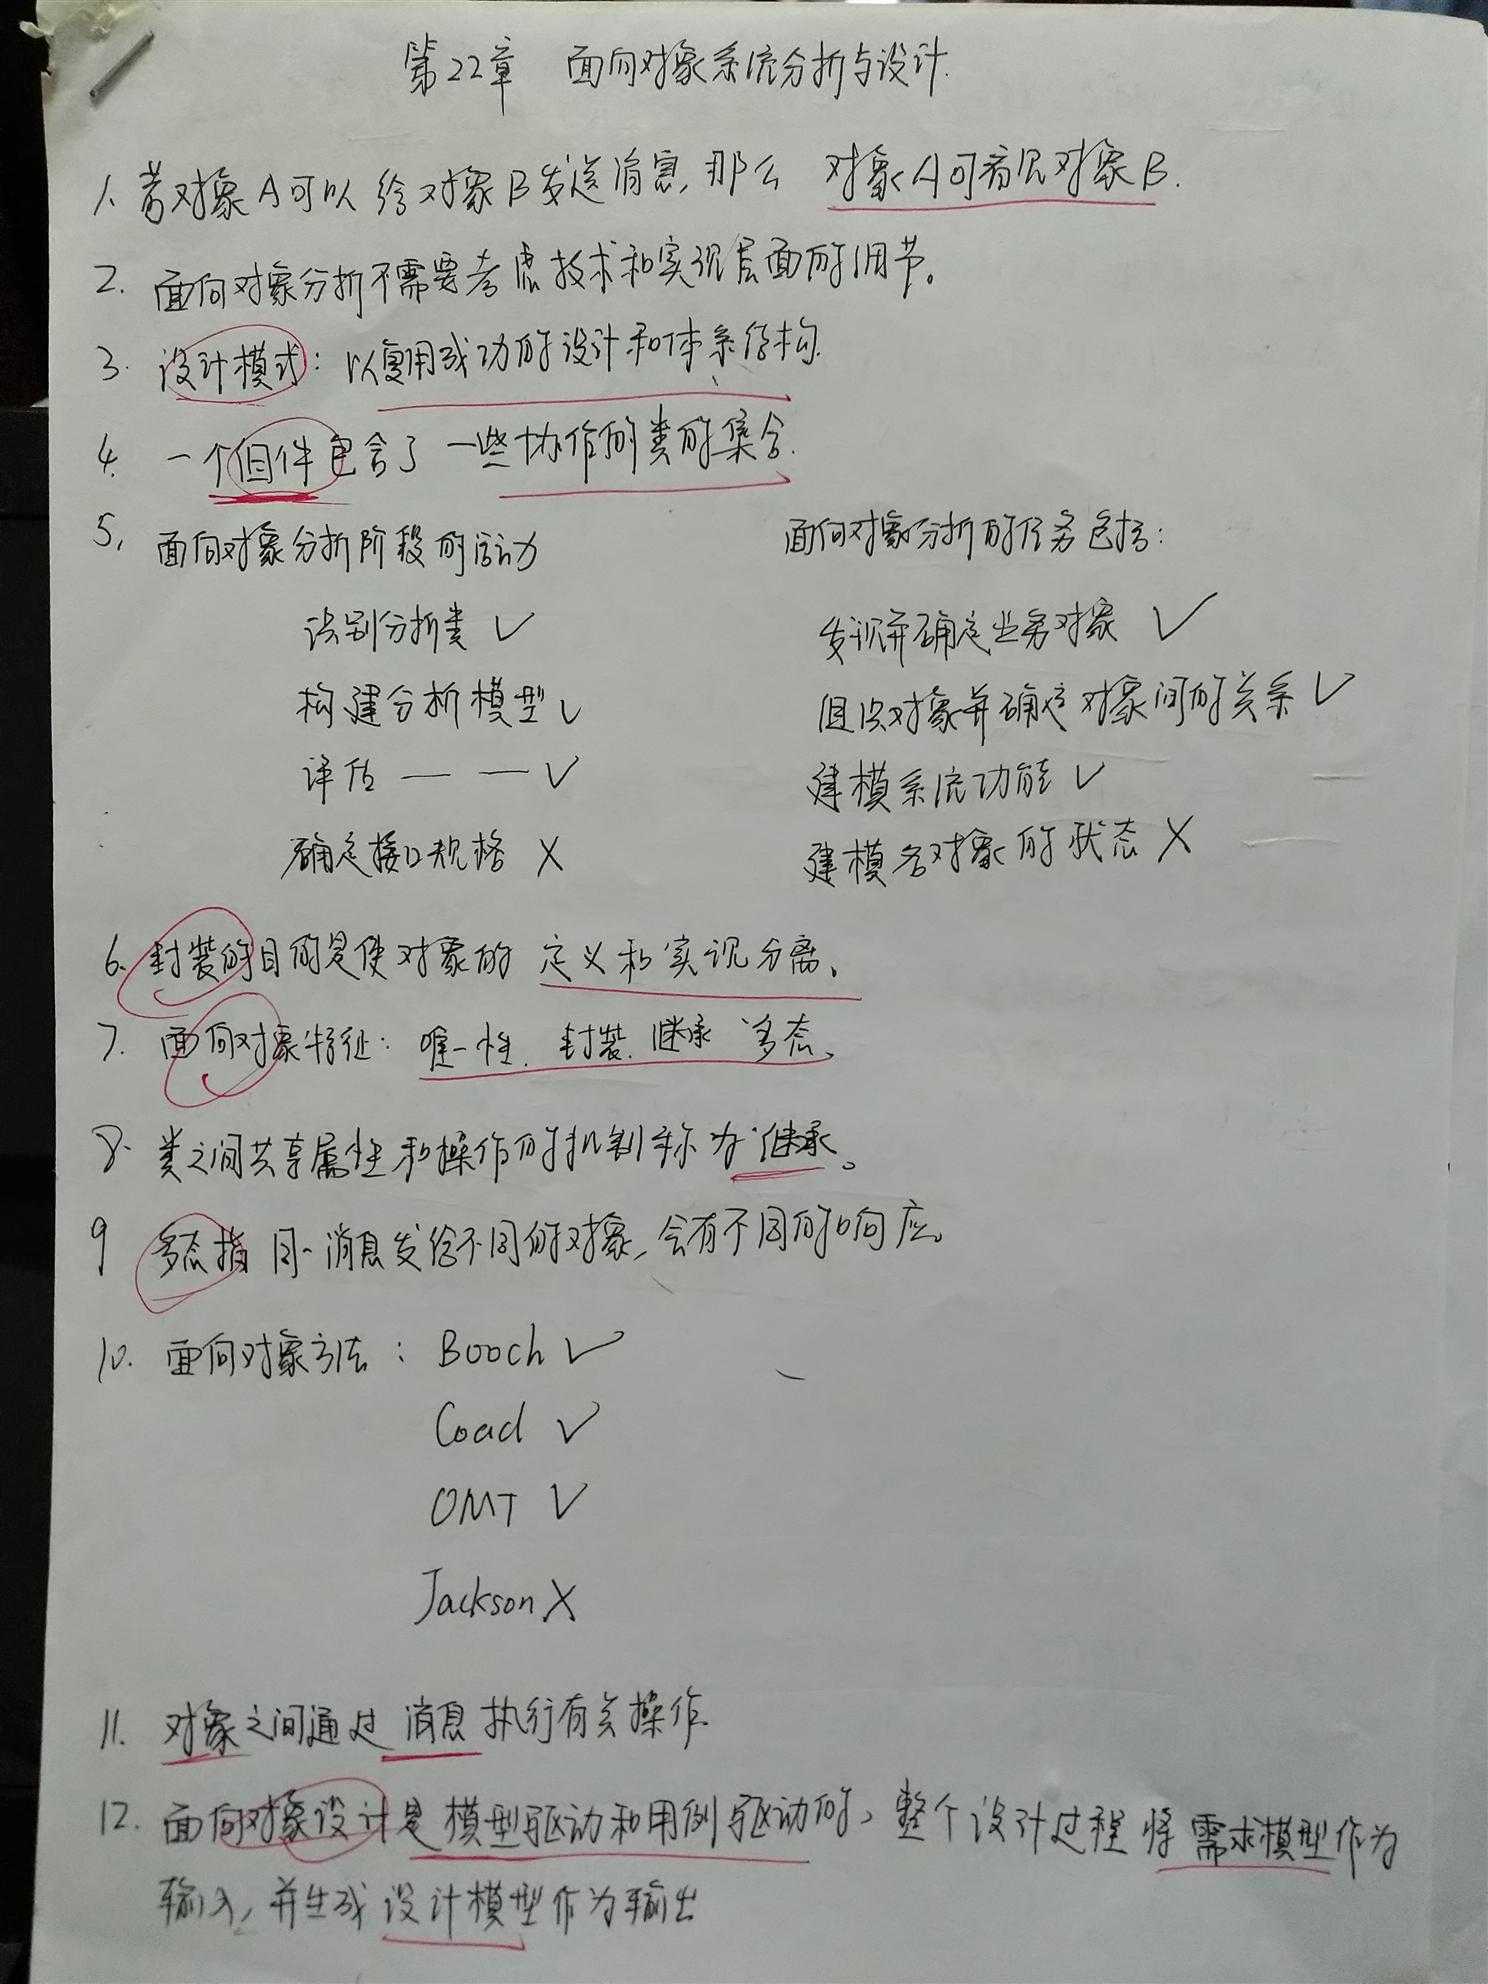 第22章 面向对象系统分析与设计.
1. 若对象A可以给对象B发送消息, 那么 对象A可看见对象B.
2. 面向对象分析不需要考虑技术和实现层面的细节。
3. 设计模式: 以复用成功的设计和体系结构.
4. 一个组件包含了一些协作的类的集合.
5. 面向对象分析阶段的活动 面向对象分析的任务包括:
识别分析类 ✓ 发现并确定业务对象 ✓
构建分析模型 ✓ 组织对象并确定对象间的关系 ✓
评估 — — ✓ 建模系统功能 ✓
确定接口规格 X 建模各对象的状态 X
6. 封装的目的是使对象的 定义和实现分离。
7. 面向对象特征: 唯一性. 封装. 继承 多态。
8. 类之间共享属性和操作的机制称为 继承。
9 多态指 同一消息发给不同的对象, 会有不同的响应。
10. 面向对象方法: Booch ✓
Coad ✓
OMT ✓
Jackson X
11. 对象之间通过 消息 执行有关操作.
12. 面向对象设计是模型驱动和用例驱动的, 整个设计过程将需求模型作为
输入, 并生成设计模型作为输出